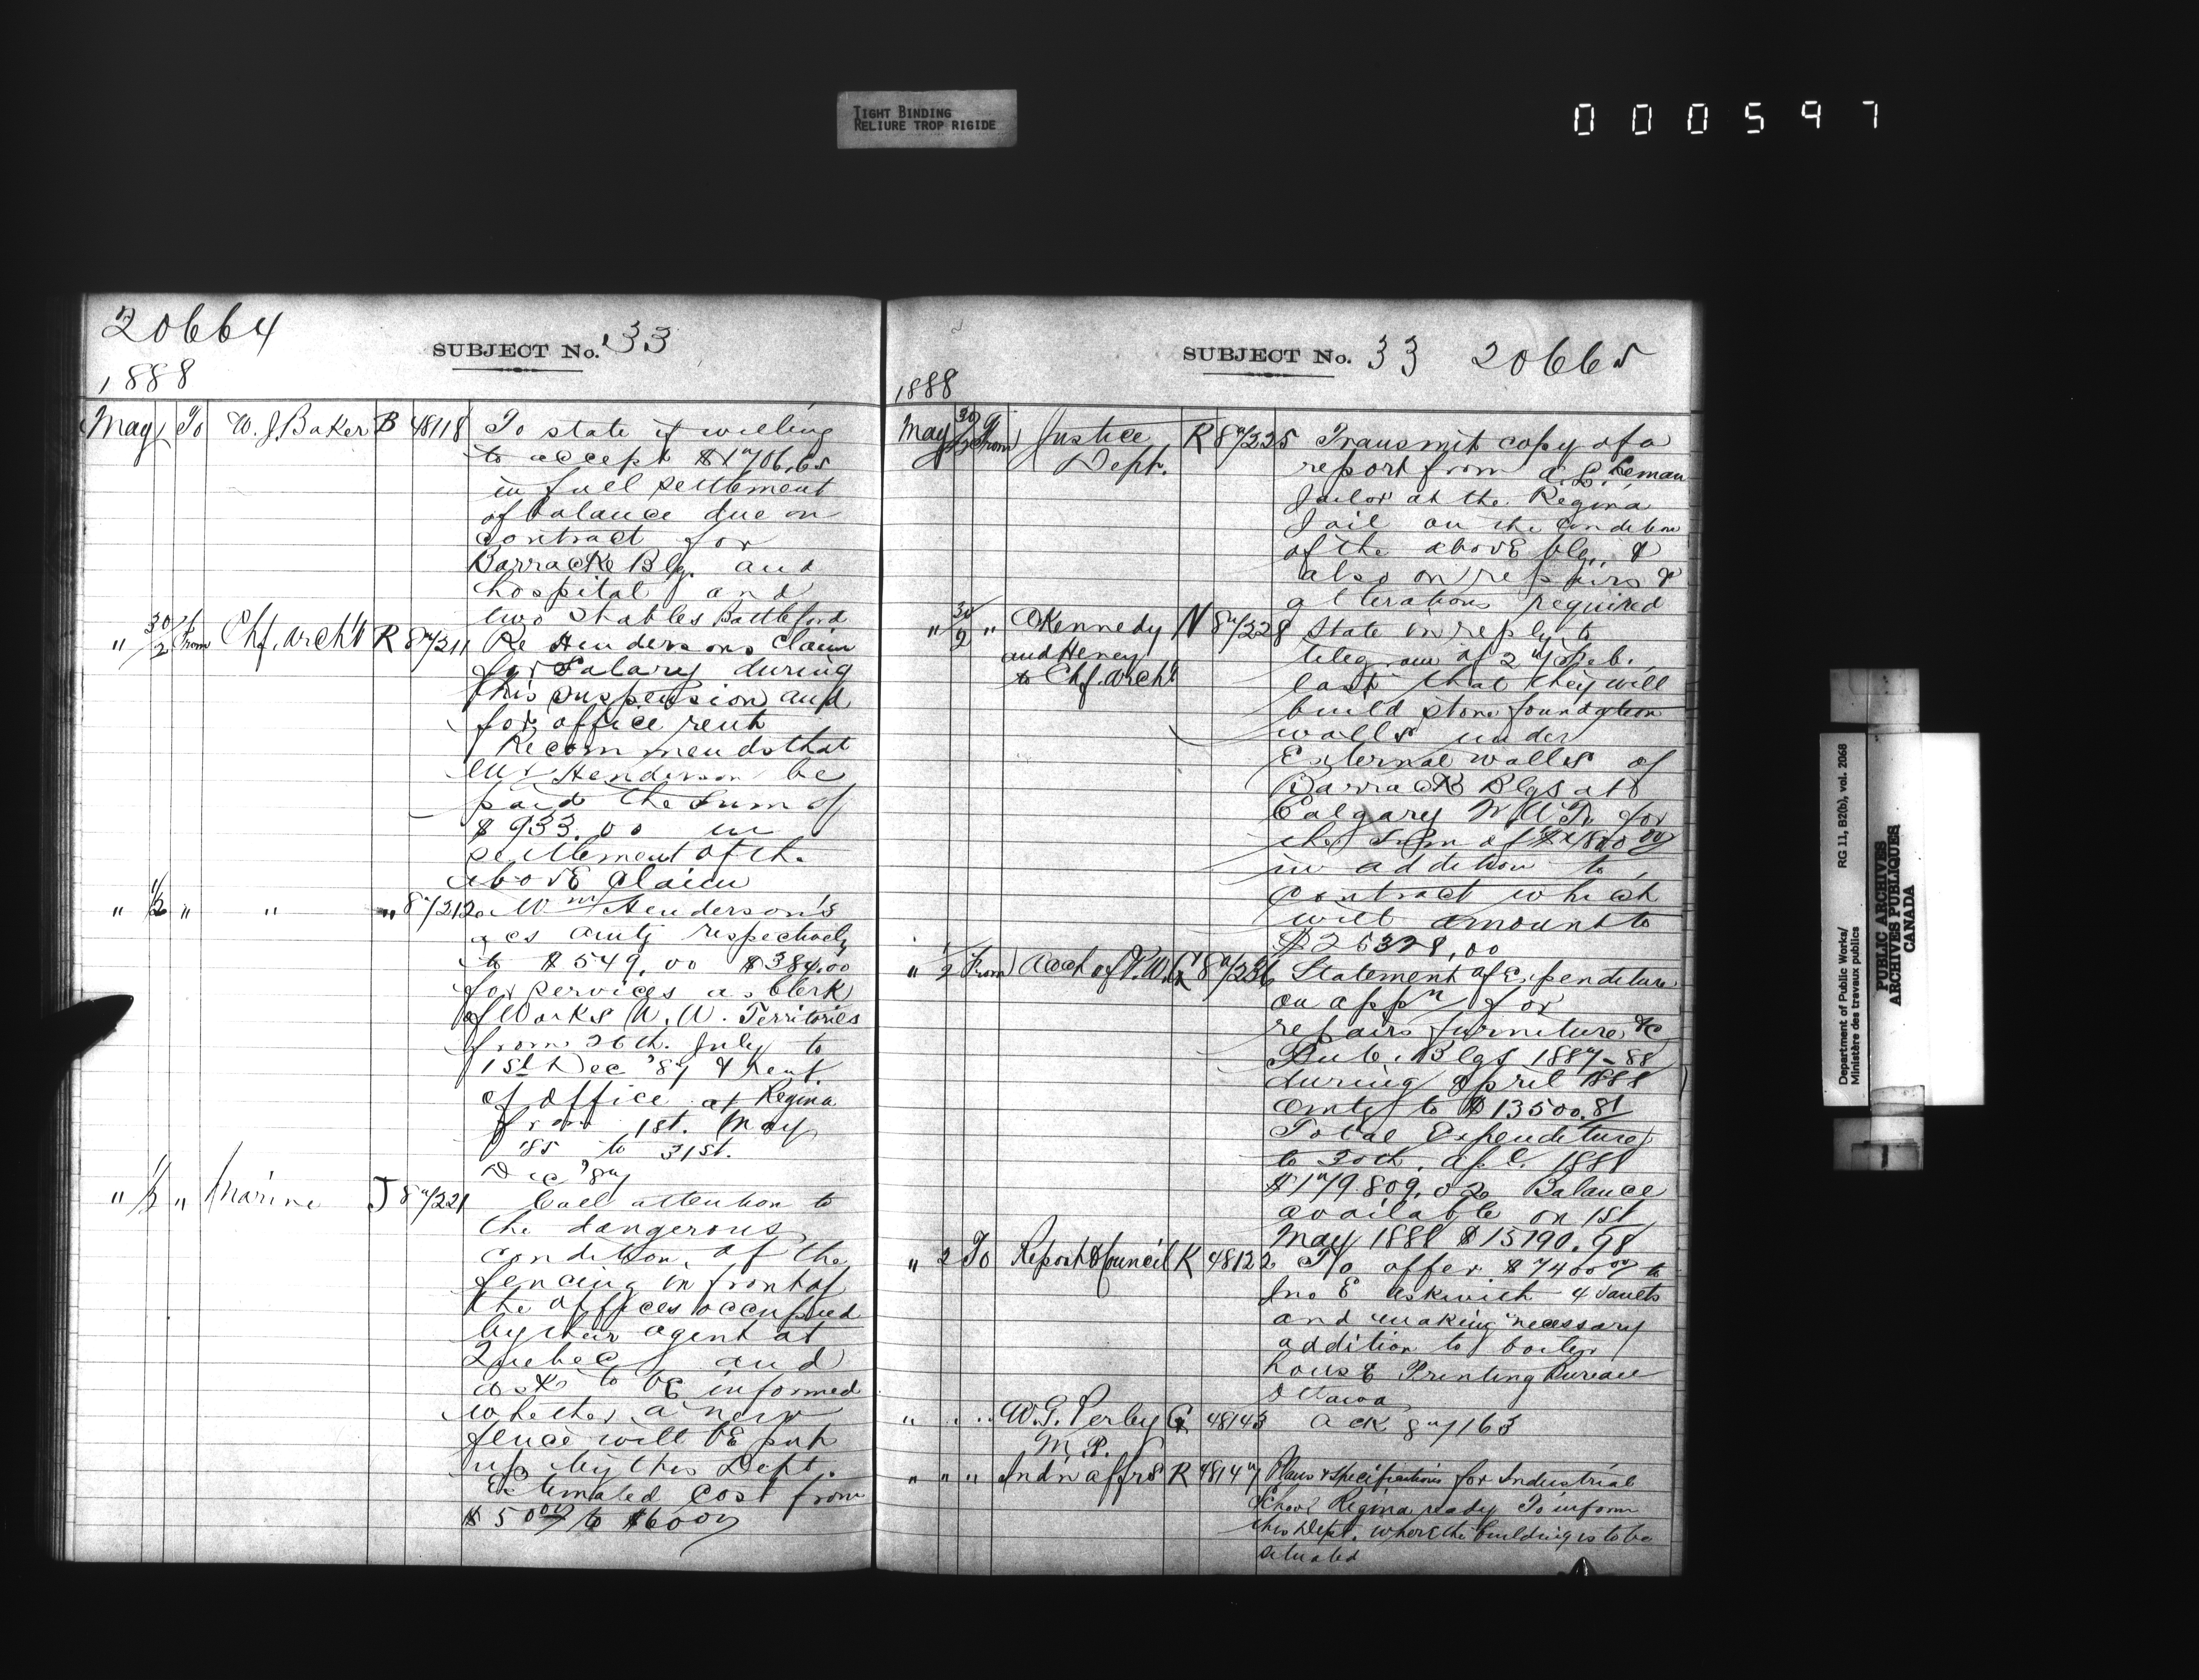 TIGHT BINDING
RELIURE TROP RIGIDE
000597
20664
SUBJECT No. 33
1888
May 1 To W. J. Baker B 48118 To state if willing
to accept
in full settlement
of balance due on
contract for
Barrack Blg. and
hospital and
two stables Battleford
" 30/2 From Chf. Arch't R 87211 Re Hendersons Claim
for Salary during
his suspension and
for office rent
Recommends that
Mr Henderson be
paid the sum of
$933.00 in
settlement of the
above claim
" 1/2 " " " 87212 Wm Henderson's
acs amtg respectively
to $549.00 $384.00
for services as Clerk
of Works N. W. Territories
from 26th. July to
1st Dec '87 & Rent
of Office at Regina
from 1st. May
'85 to 31st.
Dec '87
" 1/2 " Marine J 87221 Call attention to
the dangerous
condition, of the
fencing in front of
the offices occupied
by their agent at
Quebec and
asks to be informed
whether a new
fence will be put
up by this Dept.
Estimated cost from
$50 00 to $60 00
SUBJECT No. 33 20665
1888
May 30/2 From Justice R 87225 Transmit copy of a
Dept. report from
Jailor at the Regina
Jail on the condition
of the above blg. &
also on repairs &
alterations required
" 30/2 " Kennedy N 87228 State in reply to
and Heney telegram of 27 Feb.
to Chf. Arch't last that they will
build stone foundation
walls under
External walls of
Barrack Blgs at
Calgary N.W.T. for
the sum of
in addition to
contract which
will amount to
" 2 From Acct of P.W. G Statement of Expenditure
on appn for
repairs furniture &c
Pub. Blgs 1887-88
during April 1888
amtg to $13500.81
Total Expenditure
to 30th. Apl. 1888
$179.809.02 Balance
available on 1st
May 1888 $15190.98
" 2 To Report to Council K 48122 To offer $7400 00 to
Jno E Askwith 4 vaults
and making necessary
addition to boiler
house Printing Bureau
Ottawa
" " " W. G. Perley G 48143 Ack 87163
M. P.
" " " Ind'n Affrs R 48147 Plans & Specifications for Industrial
School Regina ready To inform
this Dept. where the building is to be
situated
Department of Public Works/ RG 11, B2(b), vol. 2068
Ministère des travaux publics
PUBLIC ARCHIVES
ARCHIVES PUBLIQUES
CANADA